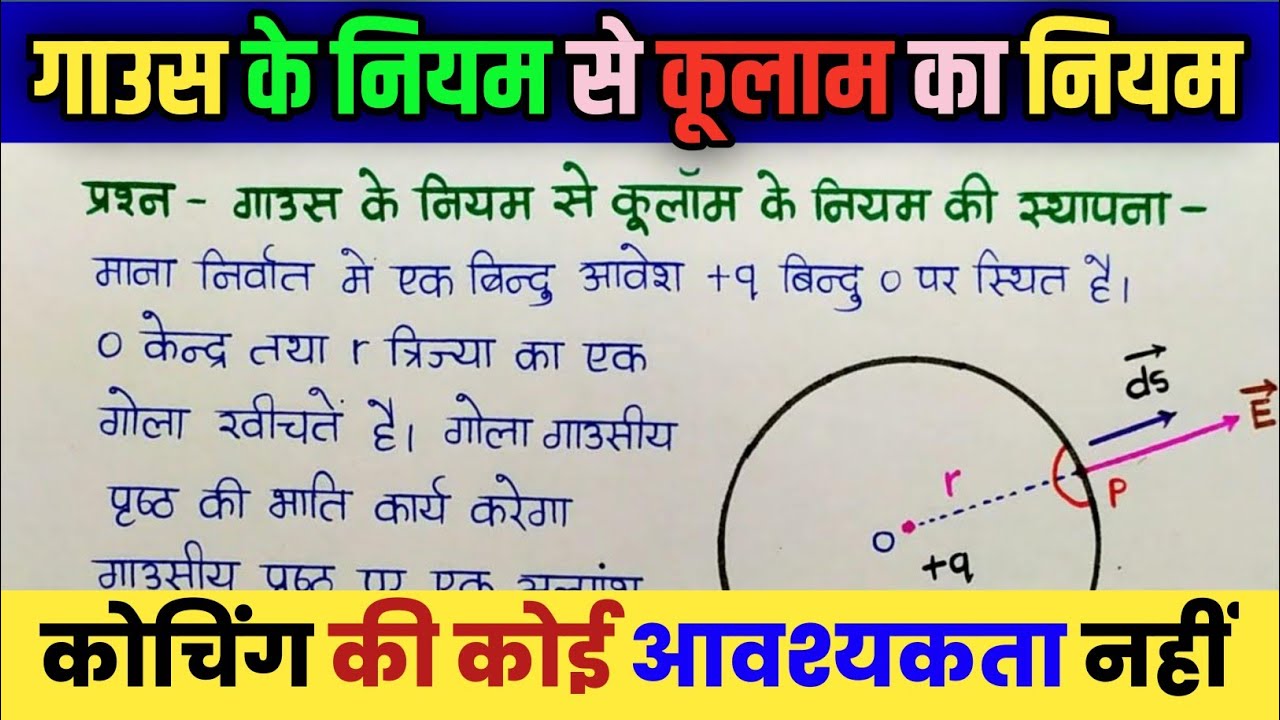 गाउस के नियम से कूलाम का नियम
प्रश्न - गाउस के नियम से कूलॉम के नियम की स्थापना -
माना निर्वात मे एक बिन्दु आवेश +q बिन्दु o पर स्थित है।
o केन्द्र तथा r त्रिज्या का एक
गोला खीचतें है। गोला गाउसीय
पृष्ठ की भाति कार्य करेगा
गाउसीय पृष्ठ पर एक
ds
E
r
P
O
+q
कोचिंग की कोई आवश्यकता नहीं